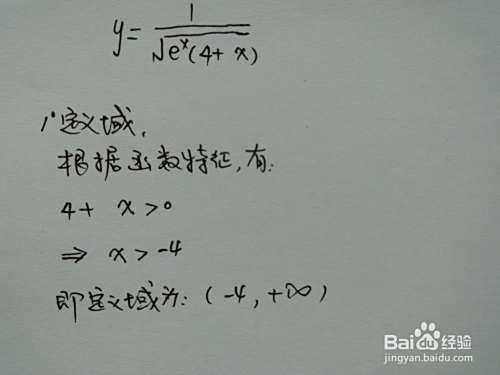 y = 1/√(e^x(4+x))
1°定义域,
根据函数特征,有:
4+ x>0
⇒ x>-4
即定义域为:(-4,+∞)
Baidu经验
jingyan.baidu.com